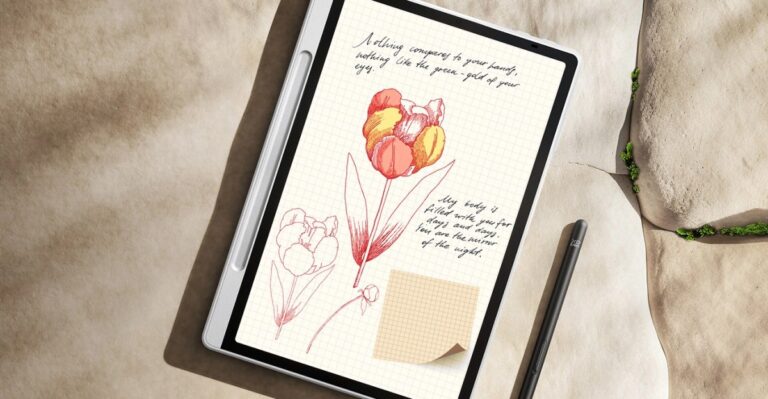 Nothing compares to your hands,
nothing like the green-gold of your
eyes.
My body is
filled with you for
days and days.
You are the mirror
of the night.